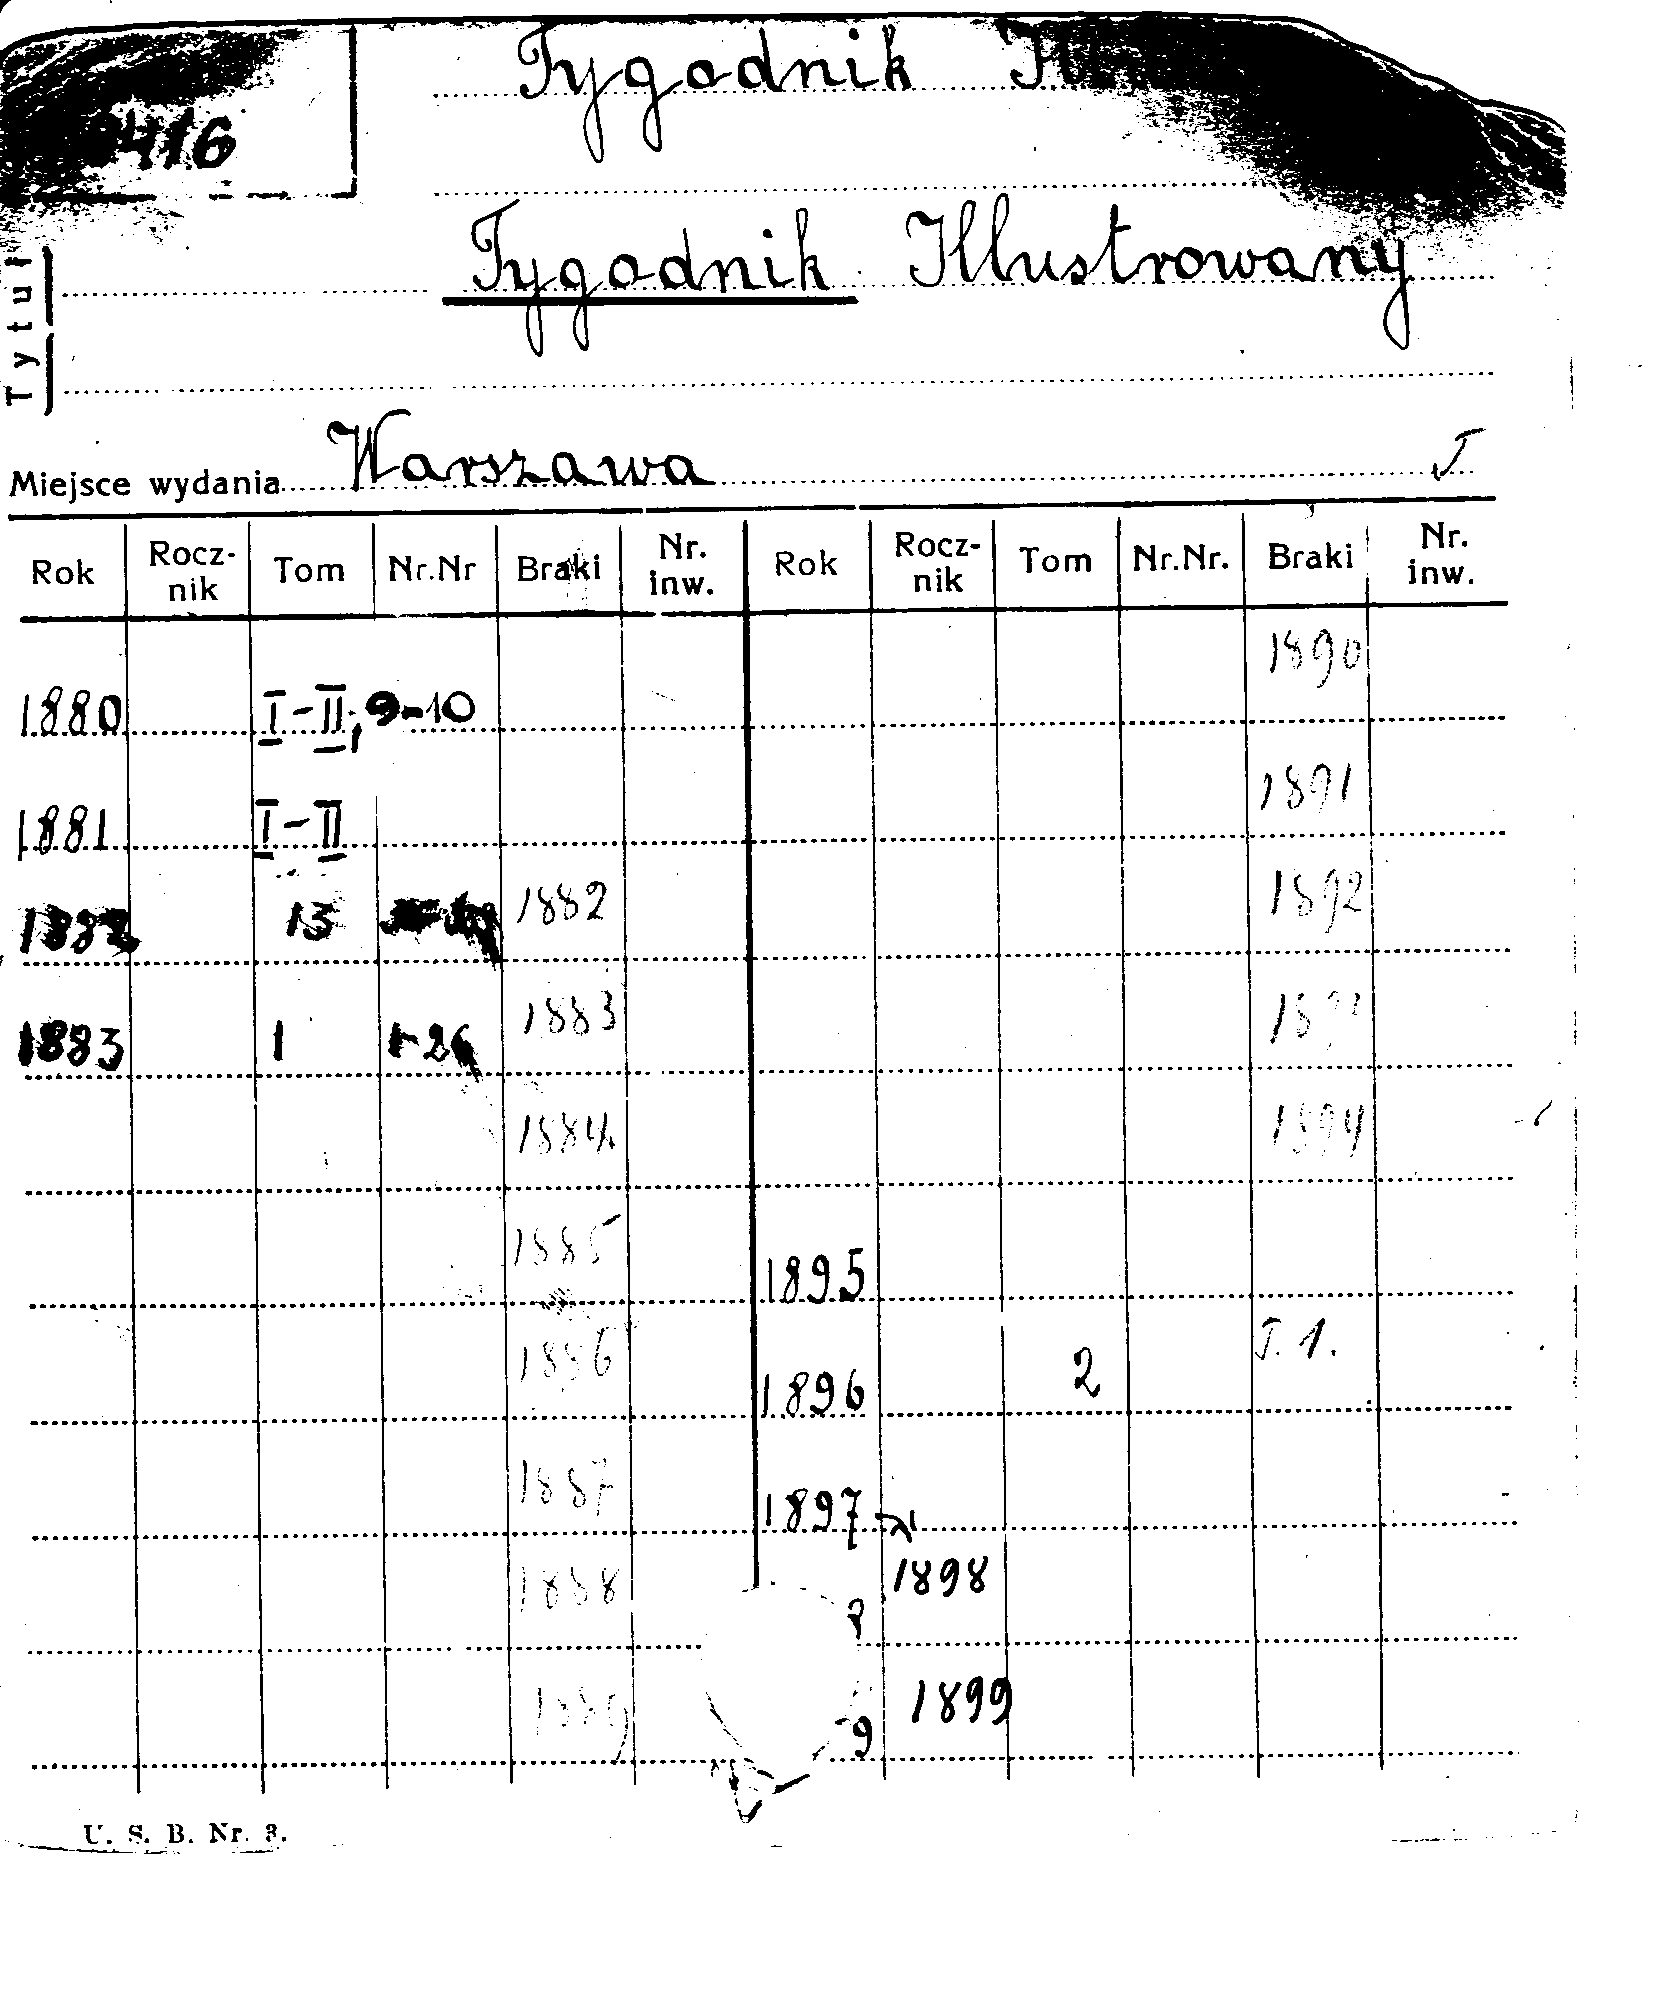 Tygodnik
416
Tygodnik Ilustrowany
Tytuł
Miejsce wydania Warszawa T
Rok Rocz-nik Tom Nr.Nr Braki Nr. inw. Rok Rocz-nik Tom Nr.Nr. Braki Nr. inw.
1890
1880 I-II, 9-10
1891
1881 I-II
1882 13 1882 1892
1883 1 1-26 1883
1884 1894
1885 1895
1886 1896 2 T. 1.
1887 1897
1888 8 1898
1889 9 1899
U. S. B. Nr. 3.